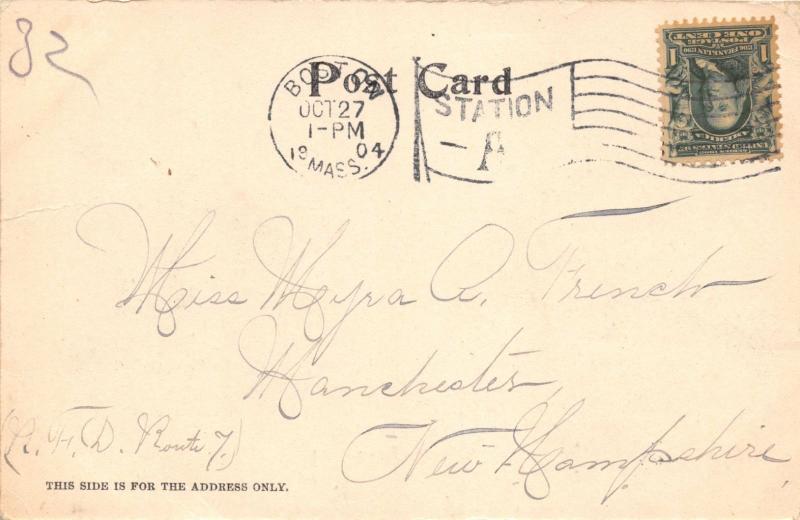 82
Post Card
BOSTON
OCT 27
1-PM
1904
MASS.
STATION
A
ONE CENT
POSTAGE
1 1
AMERICA
Miss Myra A. French
Manchester,
New Hampshire,
(R. F. D. Route 7.)
THIS SIDE IS FOR THE ADDRESS ONLY.